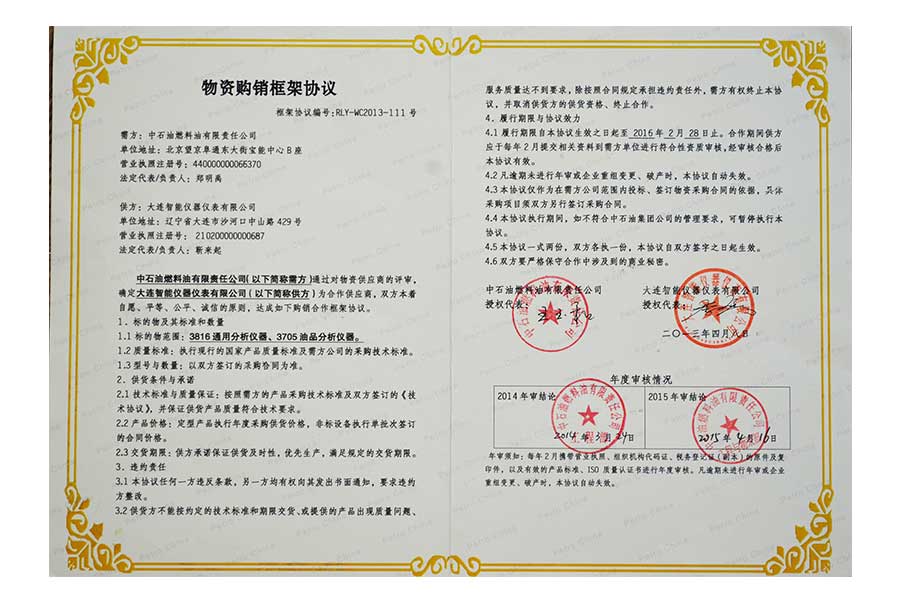 物资购销框架协议
框架协议编号：RLY-WC2013-111 号
需方：中石油燃料油有限责任公司
单位地址：北京望京阜通东大街宝能中心 B 座
营业执照注册号：440000000066370
法定代表/负责人：郑明禹
供方：大连智能仪器仪表有限公司
单位地址：辽宁省大连市沙河口中山路 429 号
营业执照注册号： 210200000000687
法定代表/负责人：靳来起
中石油燃料油有限责任公司(以下简称需方)通过对物资供应商的评审,
确定大连智能仪器仪表有限公司(以下简称供方)为合作供应商，双方本着
自愿、平等、公平、诚信的原则，达成如下购销合作框架协议。
1．标的物及其标准和数量
1.1 标的物范围：3816 通用分析仪器、3705 油品分析仪器。
1.2 质量标准：执行现行的国家产品质量标准及需方公司的采购技术标准。
1.3 型号与数量：以双方签订的采购合同为准。
2．供货条件与承诺
2.1 技术标准与质量保证：按照需方的产品采购技术标准及双方签订的《技
术协议》，并保证供货产品质量符合技术要求。
2.2 产品价格：定型产品执行年度采购供货价格，非标设备执行单批次签订
的合同价格。
2.3 交货期限：供方承诺保证供货及时性，优先生产，满足规定的交货期限。
3．违约责任
3.1 本协议任何一方违反条款，另一方均有权向其发出书面通知，要求违约
方整改。
3.2 供货方不能按约定的技术标准和期限交货、或提供的产品出现质量问题、
服务质量达不到要求，除按照合同规定承担违约责任外，需方有权终止本协
议，并取消供货方的供货资格、终止合作。
4．履行期限与协议效力
4.1 履行期限自本协议生效之日起至 2016 年 2 月 28 日止。合作期间供方
应于每年 2 月提交相关资料到需方单位进行符合性资质审核，经审核合格后
本协议有效。
4.2 凡逾期未进行年审或企业重组变更、破产时，本协议自动失效。
4.3 本协议仅作为在需方公司范围内投标、签订物资采购合同的依据，具体
采购项目须双方另行签订采购合同。
4.4 本协议执行期间，如不符合中石油集团公司的管理要求，可暂停执行本
协议。
4.5 本协议一式两份，双方各执一份，本协议自双方签字之日起生效。
4.6 双方要严格保守合作中涉及到的商业秘密。
中石油燃料油有限责任公司 大连智能仪器仪表有限公司
授权代表： 授权代表：
二〇一三年四月八日
年度审核情况
2014 年审结论 2015 年审结论
2014 年 3 月 24 日 2015 年 4 月 10 日
年审须知：每年 2 月携带营业执照、组织机构代码证、税务登记证（副本）的原件及复
印件，以及有效的产品标准、ISO 质量认证书进行年度审核。凡逾期未进行年审或企业
重组变更、破产时，本协议自动失效。